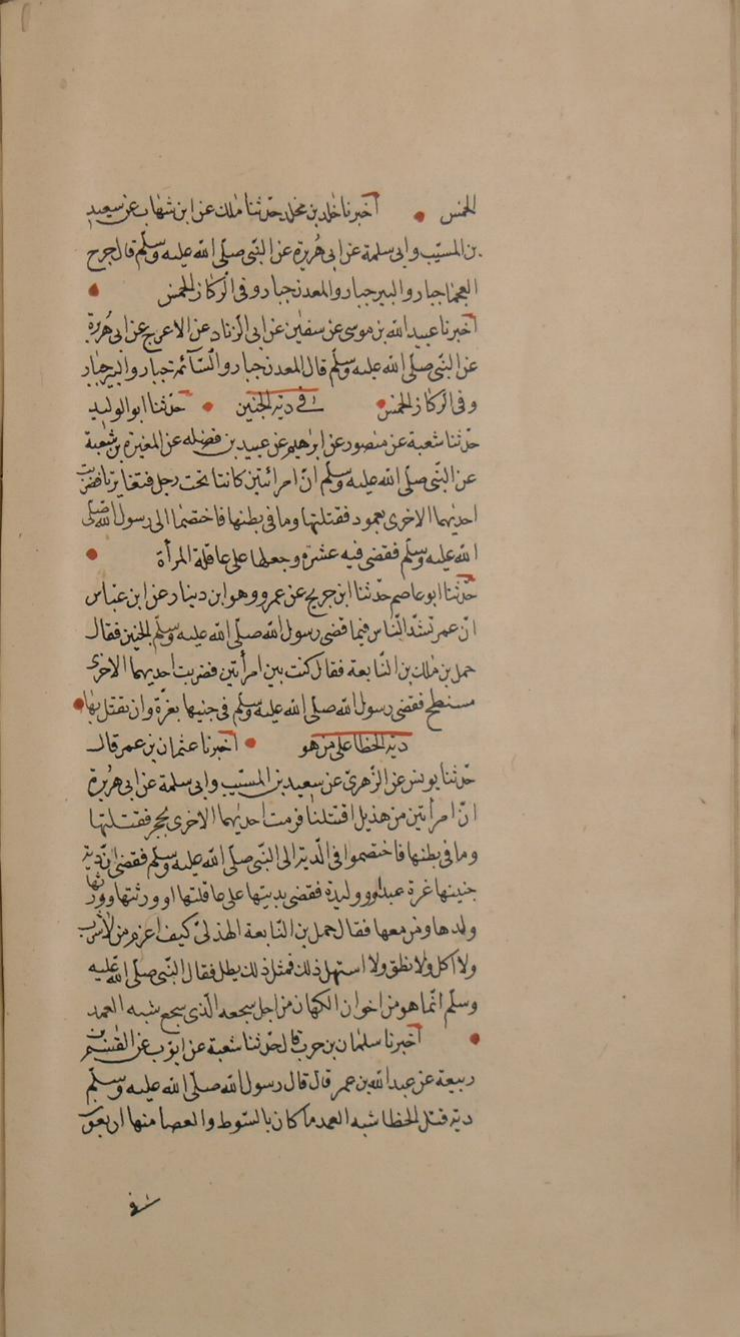 الخمس • أخبرنا خلد بن مخلد حدثنا ملك عن ابن شهاب عن سعيد
بن المسيب وابى سلمة عن ابى هُريرة عن النبى صلّى الله عليه وسلّم قال جرح
العجما جبار والبير جبار والمعدن جبار وفى الركاز الخمس •
أخبرنا عبيد الله بن موسى عن سفين عن ابى الزناد عن الاعرج عن ابى هُريرة
عن النبى صلّى الله عليه وسلّم قال المعدن جبار والسّآئمة جبار والبير جبار
وفى الركاز الخمس • فى دية الجنين • حدّثنا ابو الوليد
حدّثنا شعبة عن منصور عن ابرهيم عن عبيد بن فضله عن المغيرة بن شعبة
عن النّبى صلّى الله عليه وسلّم انّ امرائتين كانتا تحت رجل فتغايرتا فضربت
احديهما الاخرى بعمود فقتلتها وما فى بطنها فاختصما الى رسول الله صلى
الله عليه وسلّم فقضى فيه عشرة وجعلها على عاقلة المرأة •
حدّثنا ابو عاصم حدّثنا ابن جريج عن عمرو وهو ابن دينار عن ابن عباس
انّ عمر نشد النّاس فيما قضى رسول الله صلّى الله عليه وسلّم الجنين فقال
حمل بن ملك بن النّابعة فقال كنت بين امرأتين فضربت احديهما الاخرى
مسطح فقضى رسول الله صلى الله عليه وسلم فى جنيها بغرّة وان تقتل بها •
دية الخطا على من هو • أخبرنا عثمان بن عمر قال
حدّثنا يونس عن الزّهرىّ عن سعيد بن المسيّب وابى سلمة عن ابى هُريرة
انّ امرأتين من هذيل اقتتلتا فرمت احديهما الاخرى بحجر فقتلتها
وما فى بطنها فاختصموا فى الدّية الى النّبى صلّى الله عليه وسلّم فقضى انّ دية
جنينها غرة عبد او وليدة فقضى بديتها على عاقلتها او ورثتها وورثها
ولدها ومن معها فقال حمل بن النّابعة الهذلىّ كيف اغرم من لا شرب
ولا اكل ولا نطق ولا استهل ذلك فمثل ذلك يطل فقال النّبى صلّى الله عليه
وسلّم انّما هو من اخوان الكهان من اجل سجعه الّذى سجع شبه العمد
• أخبرنا سلمان بن حرب قال حدّثنا شعبة عن ايّوب عن القسم بن
ربيعة عن عبد الله بن عمر قال قال رسول الله صلّى الله عليه وسلّم
دية قتل الخطا شبه العمد ما كان بالسّوط والعصا منها اربعون
فى